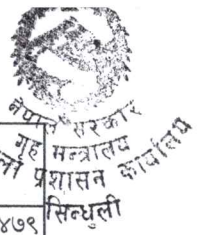 नेपाल सरकार
गृह मन्त्रालय
प्रशासन कार्यालय
सिन्धुली
४७९